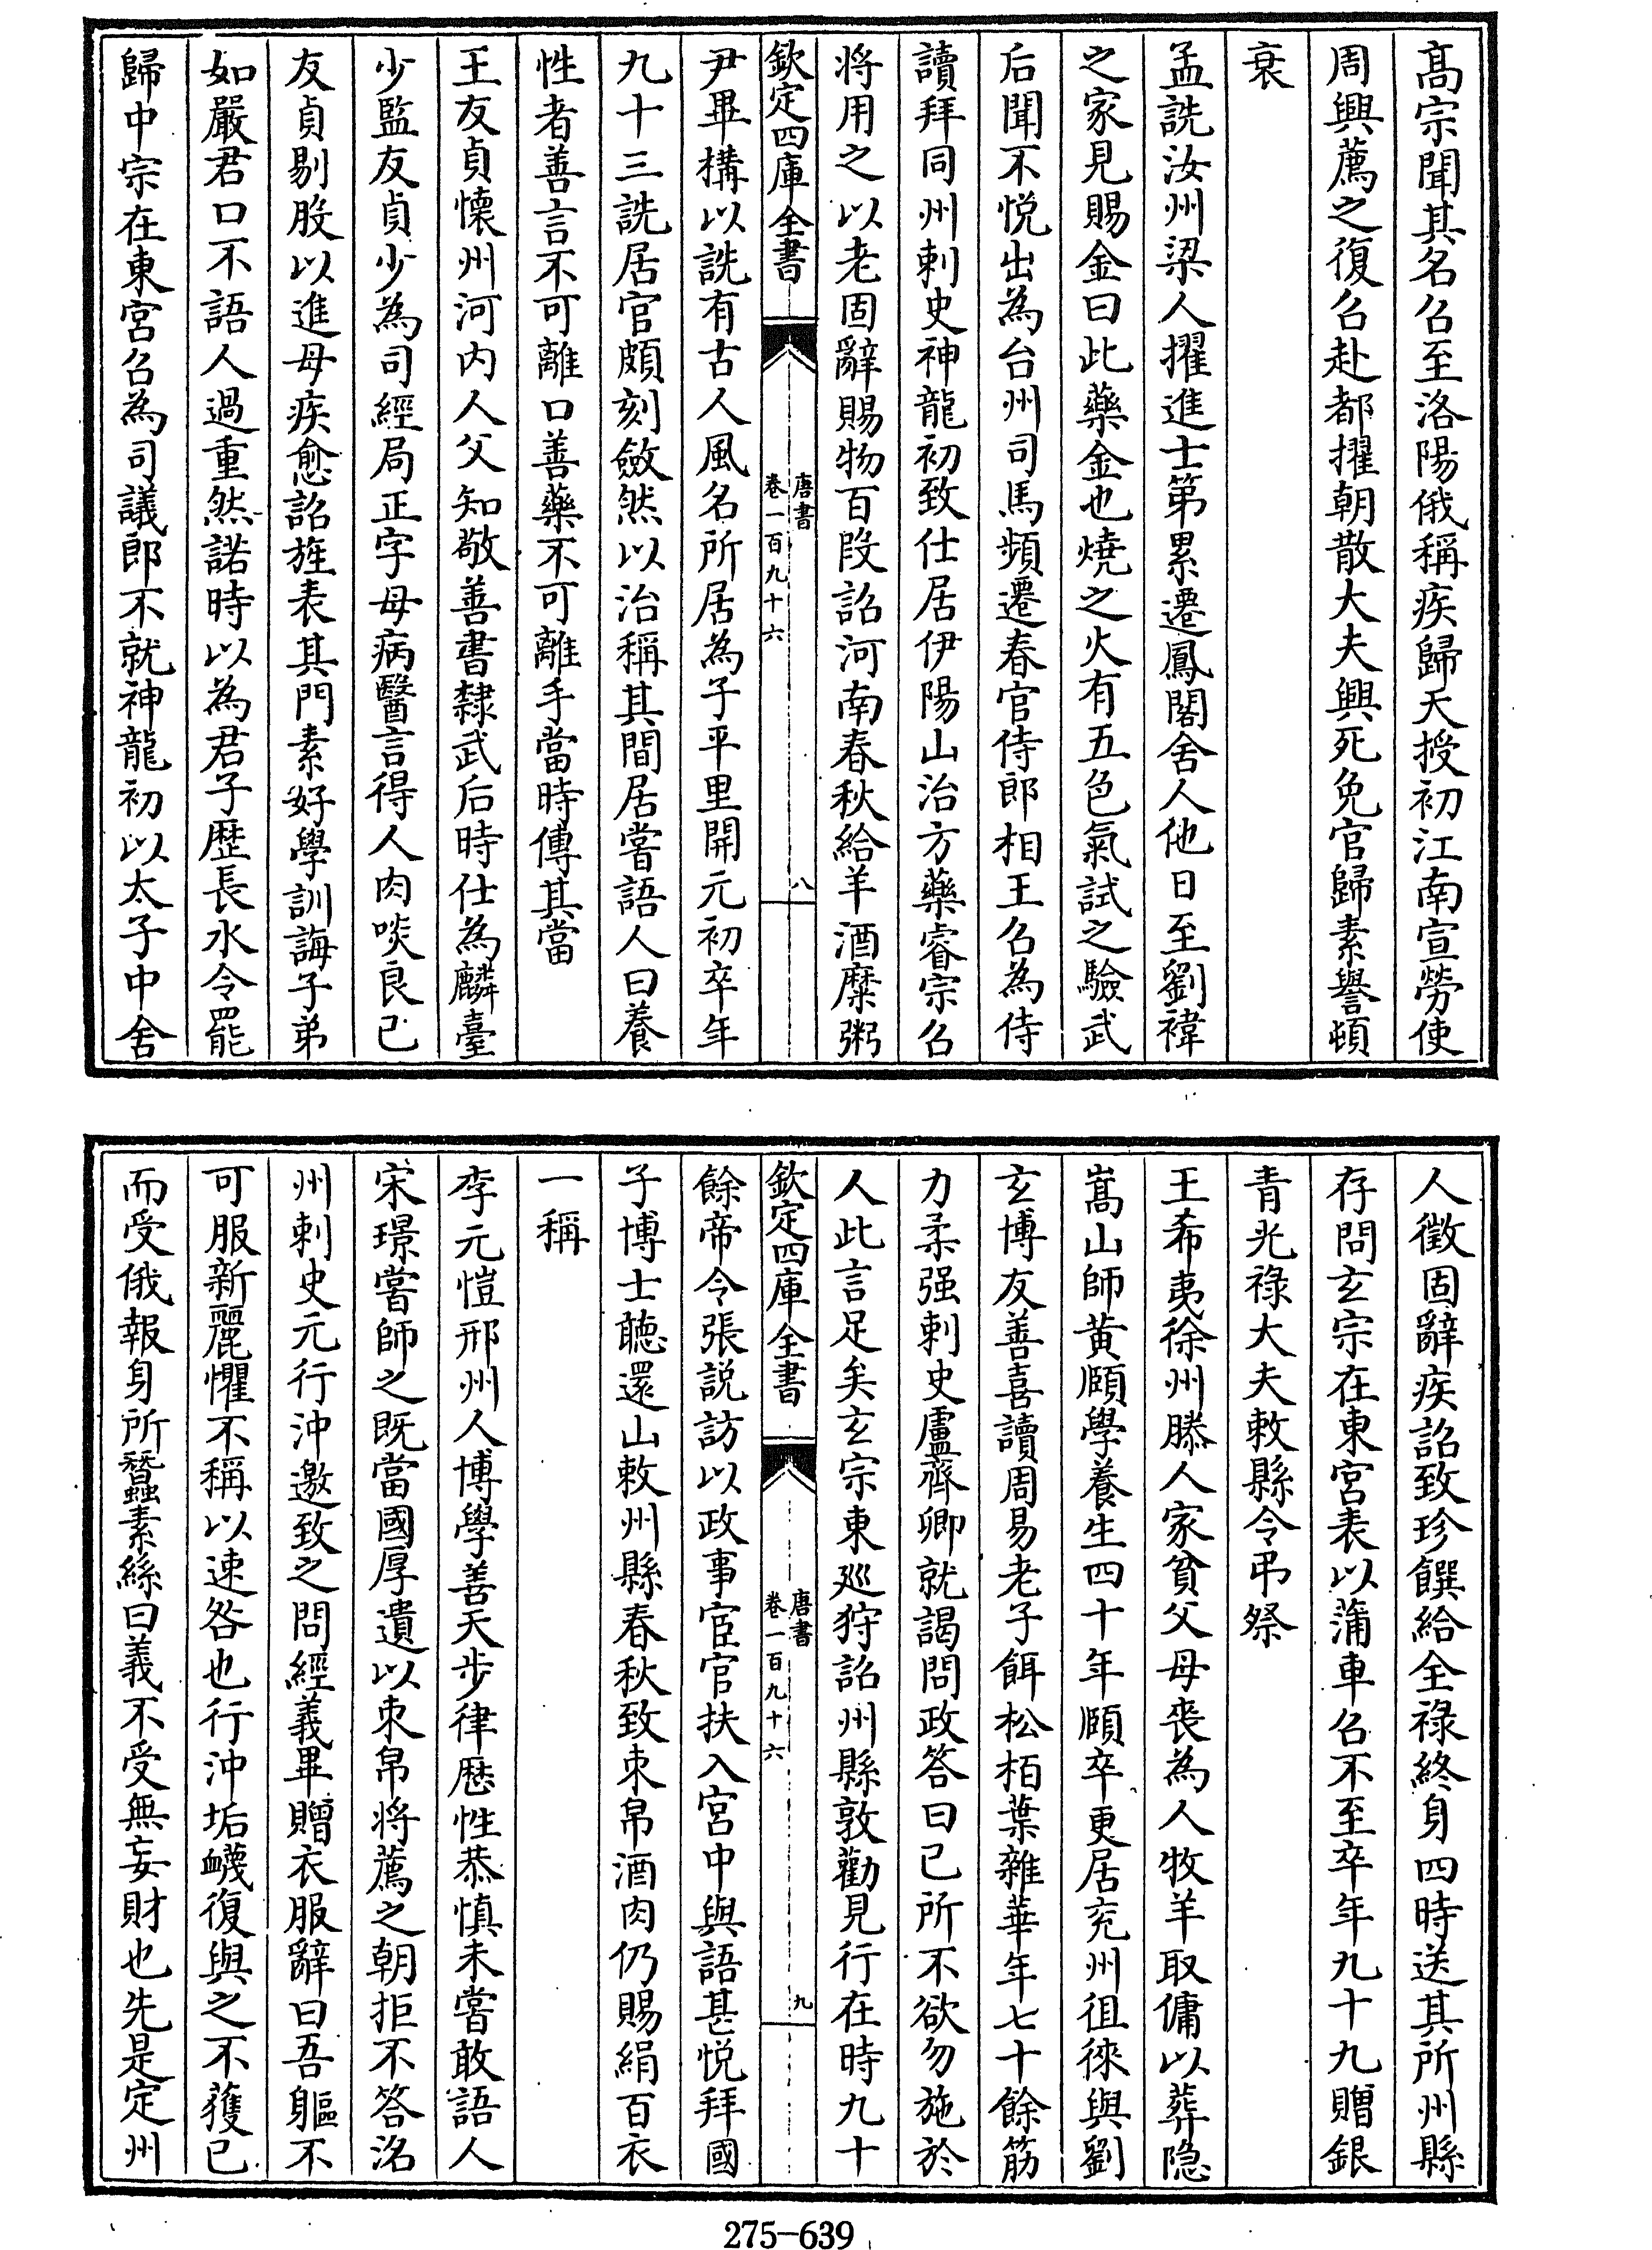 髙宗聞其名召至洛陽俄稱疾歸天授初江南宣勞使
周興薦之復召赴都擢朝散大夫興死免官歸素譽頓
衰
孟詵汝州梁人擢進士第累遷鳳閣舍人他日至劉禕
之家見賜金曰此藥金也燒之火有五色氣試之驗武
后聞不悅出為台州司馬頻遷春官侍郎相王召為侍
讀拜同州刺史神龍初致仕居伊陽山治方藥睿宗召
將用之以老固辭賜物百段詔河南春秋給羊酒糜粥
欽定四庫全書
唐書
卷一百九十六
八
尹畢構以詵有古人風名所居為子平里開元初卒年
九十三詵居官頗刻斂然以治稱其間居嘗語人曰養
性者善言不可離口善藥不可離手當時傳其當
王友貞懷州河内人父知敬善書隸武后時仕為麟臺
少監友貞少為司經局正字母病醫言得人肉啖良已
友貞剔股以進母疾愈詔旌表其門素好學訓誨子弟
如嚴君口不語人過重然諾時以為君子歷長水令罷
歸中宗在東宮召為司議郎不就神龍初以太子中舍
人徵固辭疾詔致珍饌給全祿終身四時送其所州縣
存問玄宗在東宮表以蒲車召不至卒年九十九贈銀
青光祿大夫敕縣令弔祭
王希夷徐州滕人家貧父母喪為人牧羊取傭以葬隱
嵩山師黃頤學養生四十年頤卒更居兗州徂徠與劉
玄博友善喜讀周易老子餌松柏葉雜華年七十餘筋
力柔强刺史盧齊卿就謁問政答曰已所不欲勿施於
人此言足矣玄宗東廵狩詔州縣敦勸見行在時九十
欽定四庫全書
唐書
卷一百九十六
九
餘帝令張說訪以政事宦官扶入宮中與語甚悅拜國
子博士聽還山敕州縣春秋致束帛酒肉仍賜絹百衣
一稱
李元愷邢州人博學善天步律歷性恭慎未嘗敢語人
宋璟嘗師之既當國厚遺以束帛將薦之朝拒不答洺
州刺史元行沖邀致之問經義畢贈衣服辭曰吾軀不
可服新麗懼不稱以速咎也行沖垢衊復與之不獲已
而受俄報身所蠶素絲曰義不受無妄財也先是定州
275-639